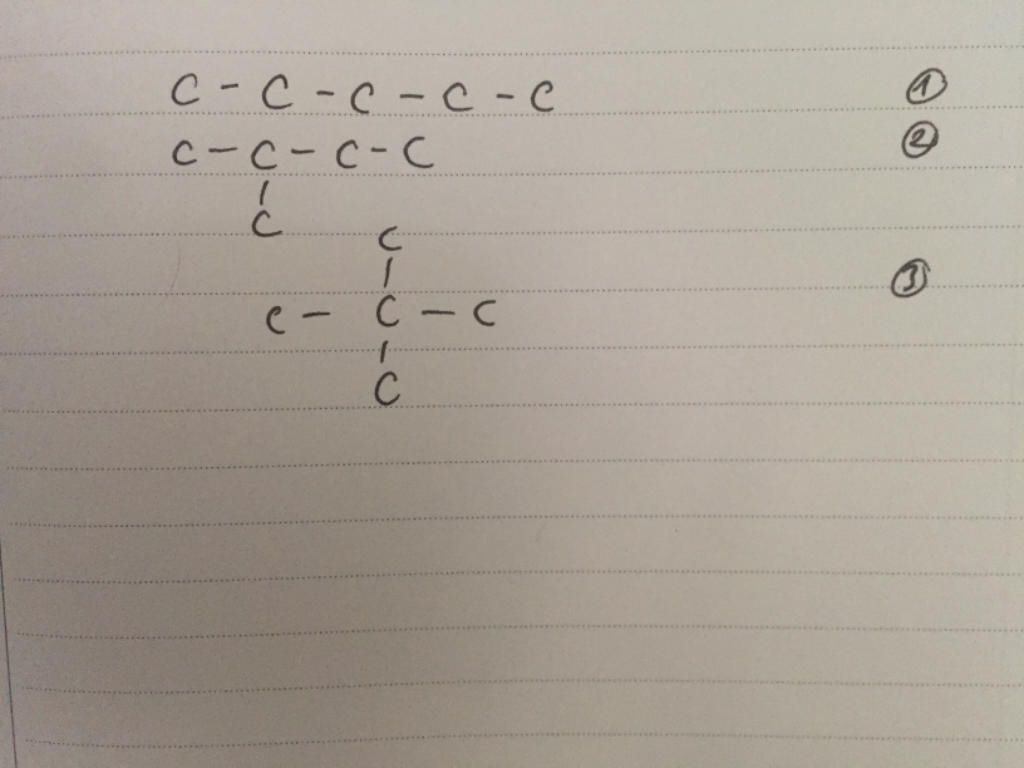 C - C - C - C - C ①
C - C - C - C ②
|
C
C
|
C - C - C ③
|
C